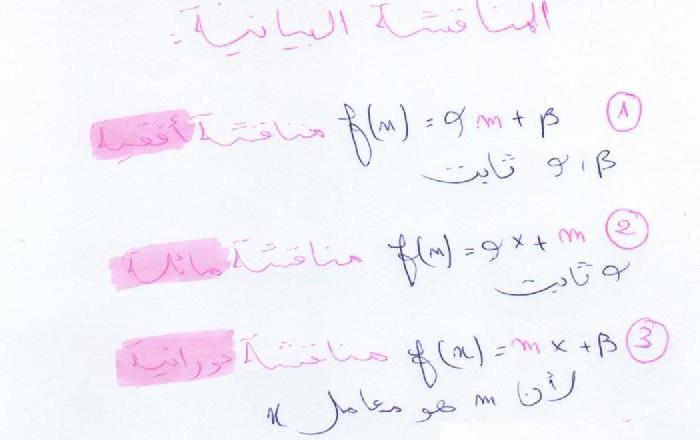 المناقشة البيانية :
① f(x) = αm + β مناقشة أفقية
α ، β ثابت
② f(x) = αx + m مناقشة مائلة
α ثابت
③ f(x) = mx + β مناقشة دورانية
لأن m هو معامل x